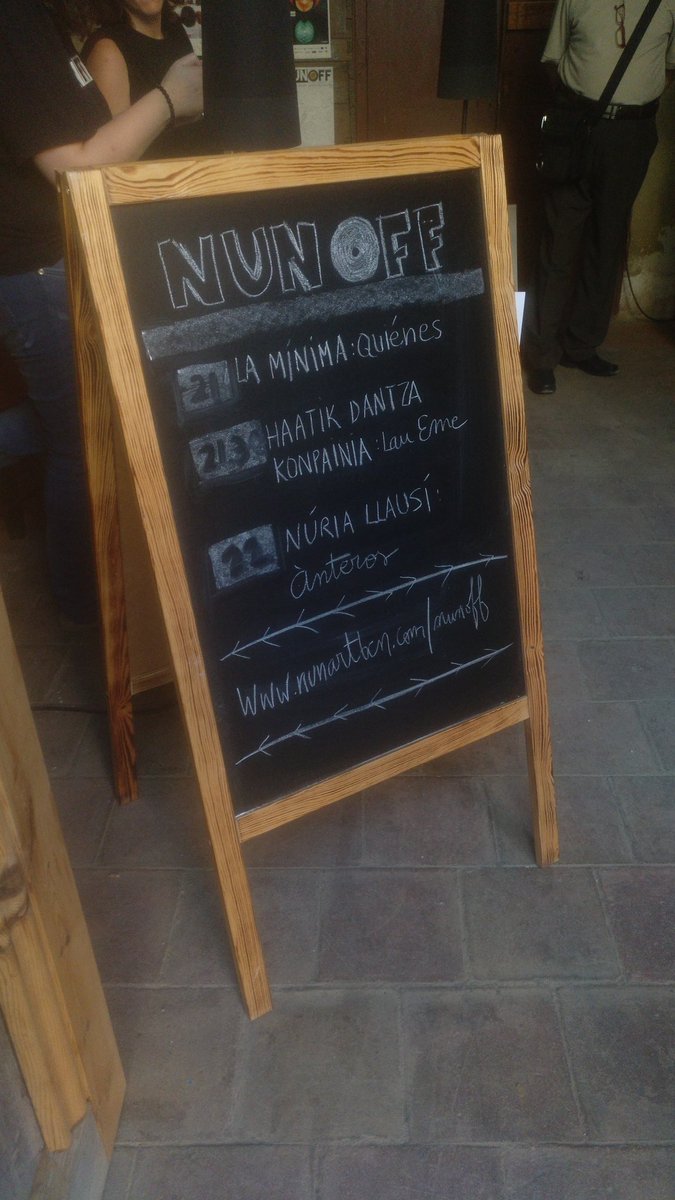 UNOFF
NUN OFF
21 LA MÍNIMA: Quiénes
HAATIK DANTZA
KONPAINIA: Lau Eme
22 NÚRIA LLAUSÍ:
Ànteros
www.nunartbcn.com/nunoff